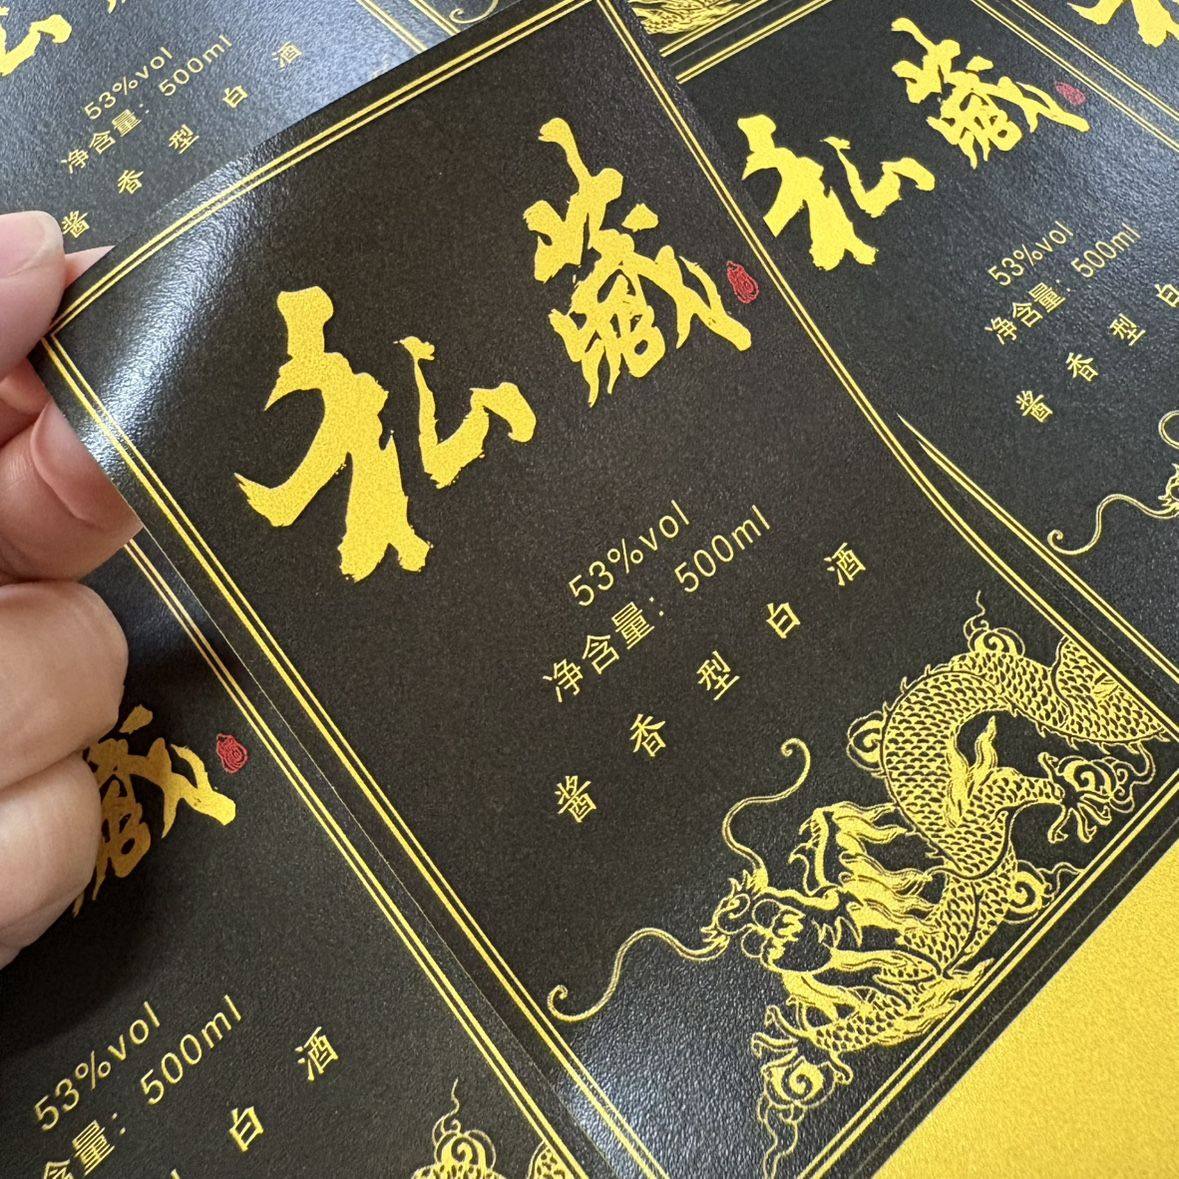 私藏
53%vol
净含量：500ml
酱香型白酒
私藏
53%vol
净含量：500ml
酱香型白
53%vol
净含量：500ml
酱香型白酒
藏
53%vol
含量：500ml
白酒